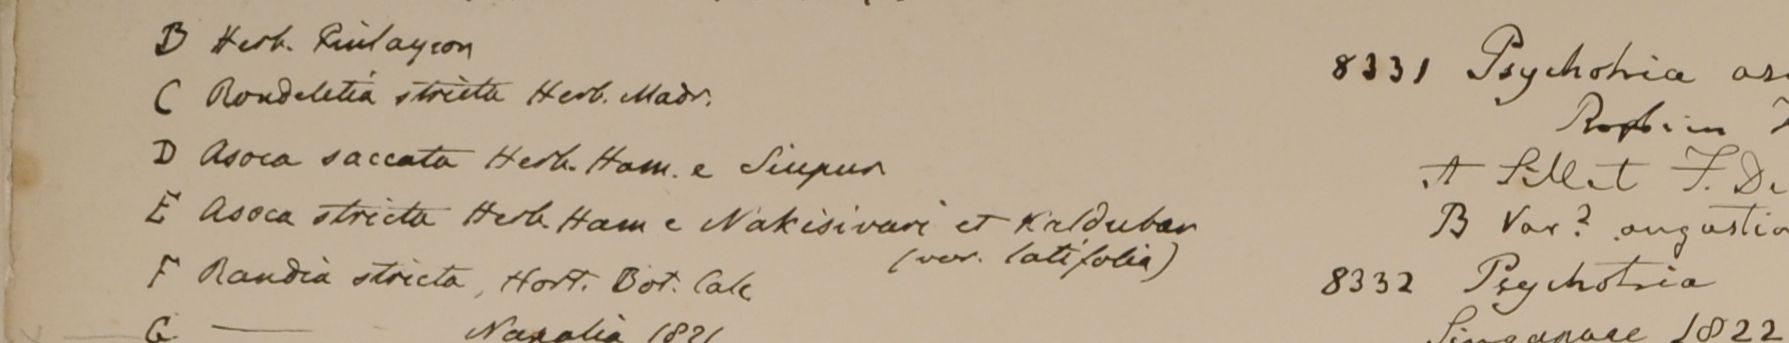 B Herb. Finlayson
C Rondeletia stricta Herb. Madr.
D Asoca saccata Herb. Ham. e Siupur
E Asoca stricta Herb. Ham e Nakisivari et Kalduban
(var. latifolia)
F Randia stricta, Hort. Bot. Calc
G —— Napalia 1821
8331 Psychotria
Roxb. in
A Sillet F. De
B Var? angustio
8332 Psychotria
Singapore 1822